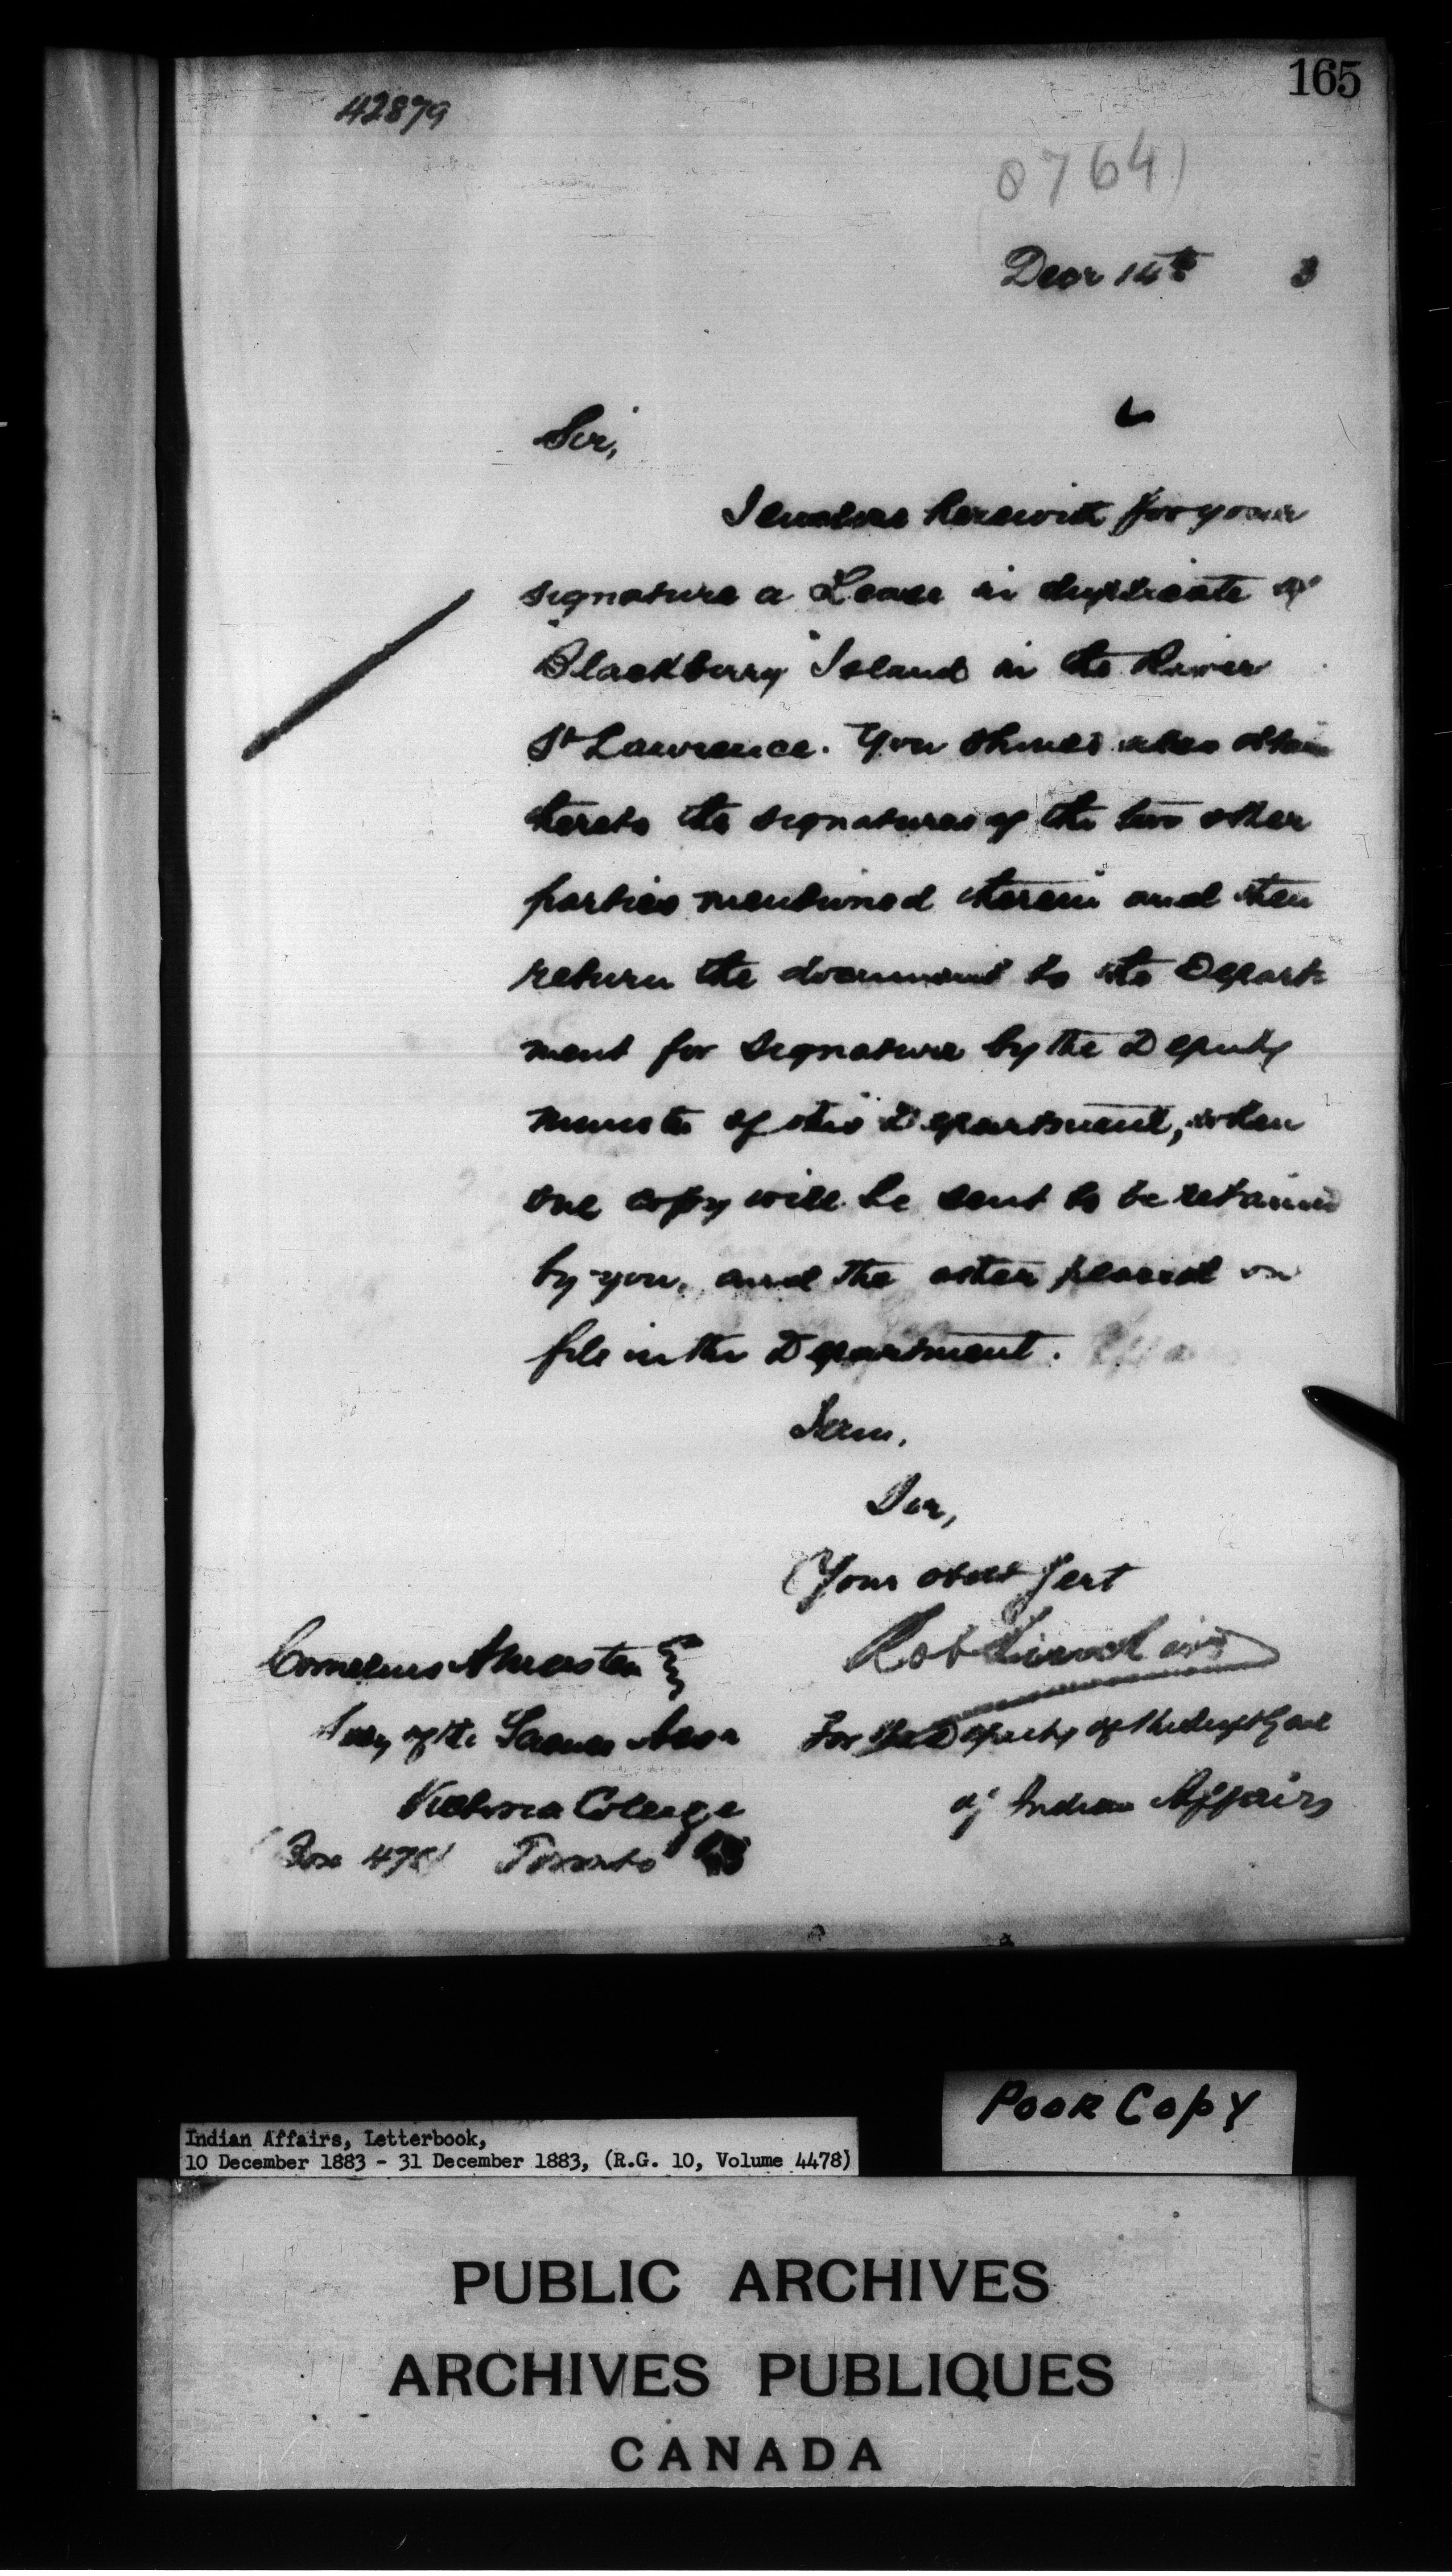 165
42879
8764)
Decr 14th 3
Sir,
I enclose herewith for your
signature a Lease in duplicate of
"Blackberry" Island in the River
St Lawrence. You should also obtain
thereto the signatures of the two other
parties mentioned therein and then
return the document to the Depart
ment for signature by the Deputy
minister of this Department, when
one copy will be sent to be retained
by you, and the other placed on
file in the Department.
I am,
Sir,
Your obedt Servt
Rob Sinclair
For the Deputy of the Supt Genl
of Indian Affairs
Cornelius
Secy of the Assn
Victoria College
Box 478 Toronto
Poor Copy
Indian Affairs, Letterbook,
10 December 1883 - 31 December 1883, (R.G. 10, Volume 4478)
PUBLIC ARCHIVES
ARCHIVES PUBLIQUES
CANADA